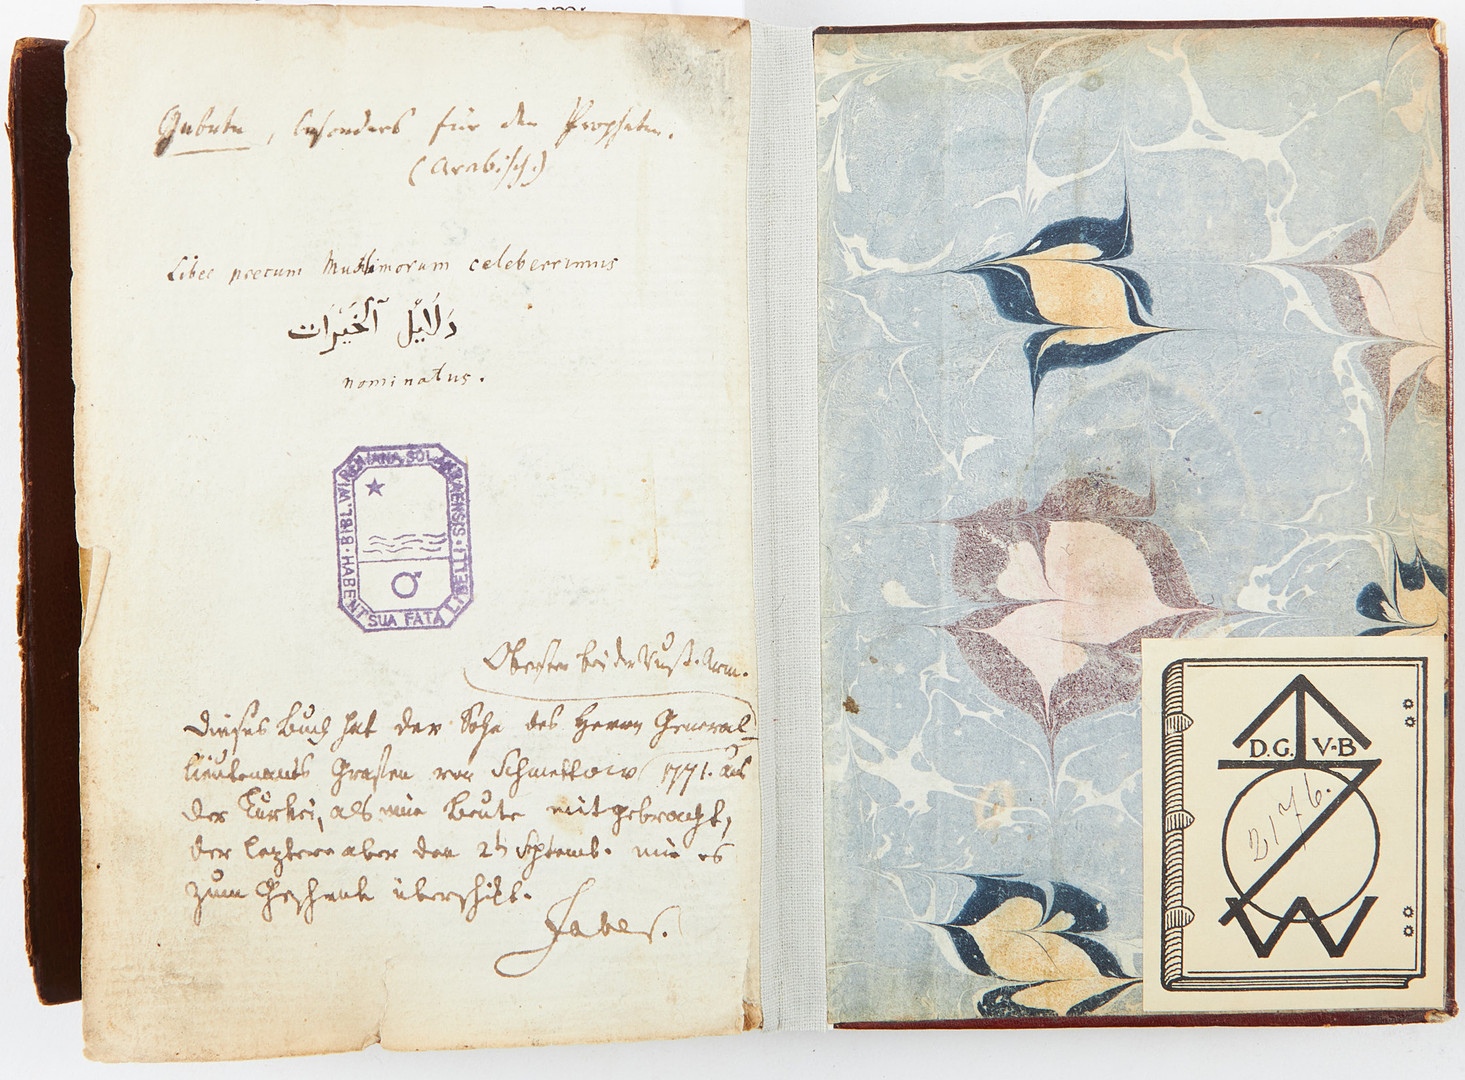 Gebete, besonders für den Propheten.
(Arabisch.)
Liber precum Muslimorum celeberrimus
دَلَائِل ٱلخَيْرَات
nominatus.
HABENT SUA FATA LIBELLI · BIBL. SOL
Obrister bei der Russ. Arm.
Dieses Buch hat der Sohn des Herrn General-
lieutenants Grafen von Schmettow 1771. aus
der Turkei, als eine Beute mitgebracht,
der letztere aber den 2ten Septemb. mir es
zum Geschenk überschikt.
Faber.
D.G. V-B
2176.
W